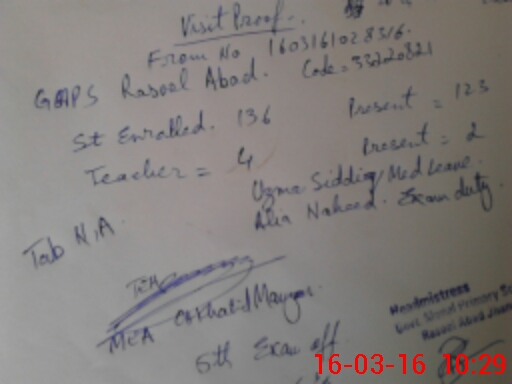 Visit Proof.
From No 1603161028316.
GGPS Rasool Abad. Code = 33220821
St Enrolled. 136 Present = 123
Teacher = 4 Present = 2
Uzma Siddiq / Med Leave.
Tab N.A. Alia Naheed. Exam duty.
MEA
Headmistress
Govt.
Rasool Abad
5th Exam off.
16-03-16 10:29